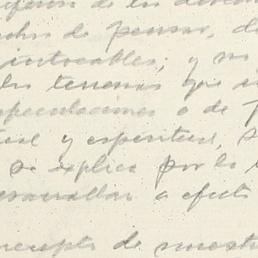 de los
de pensar, de
intocables; y no
los terrenos que
especulaciones o de
y espiritual, s
se explica por la
desarrollar a efecto
concepto de nuestr